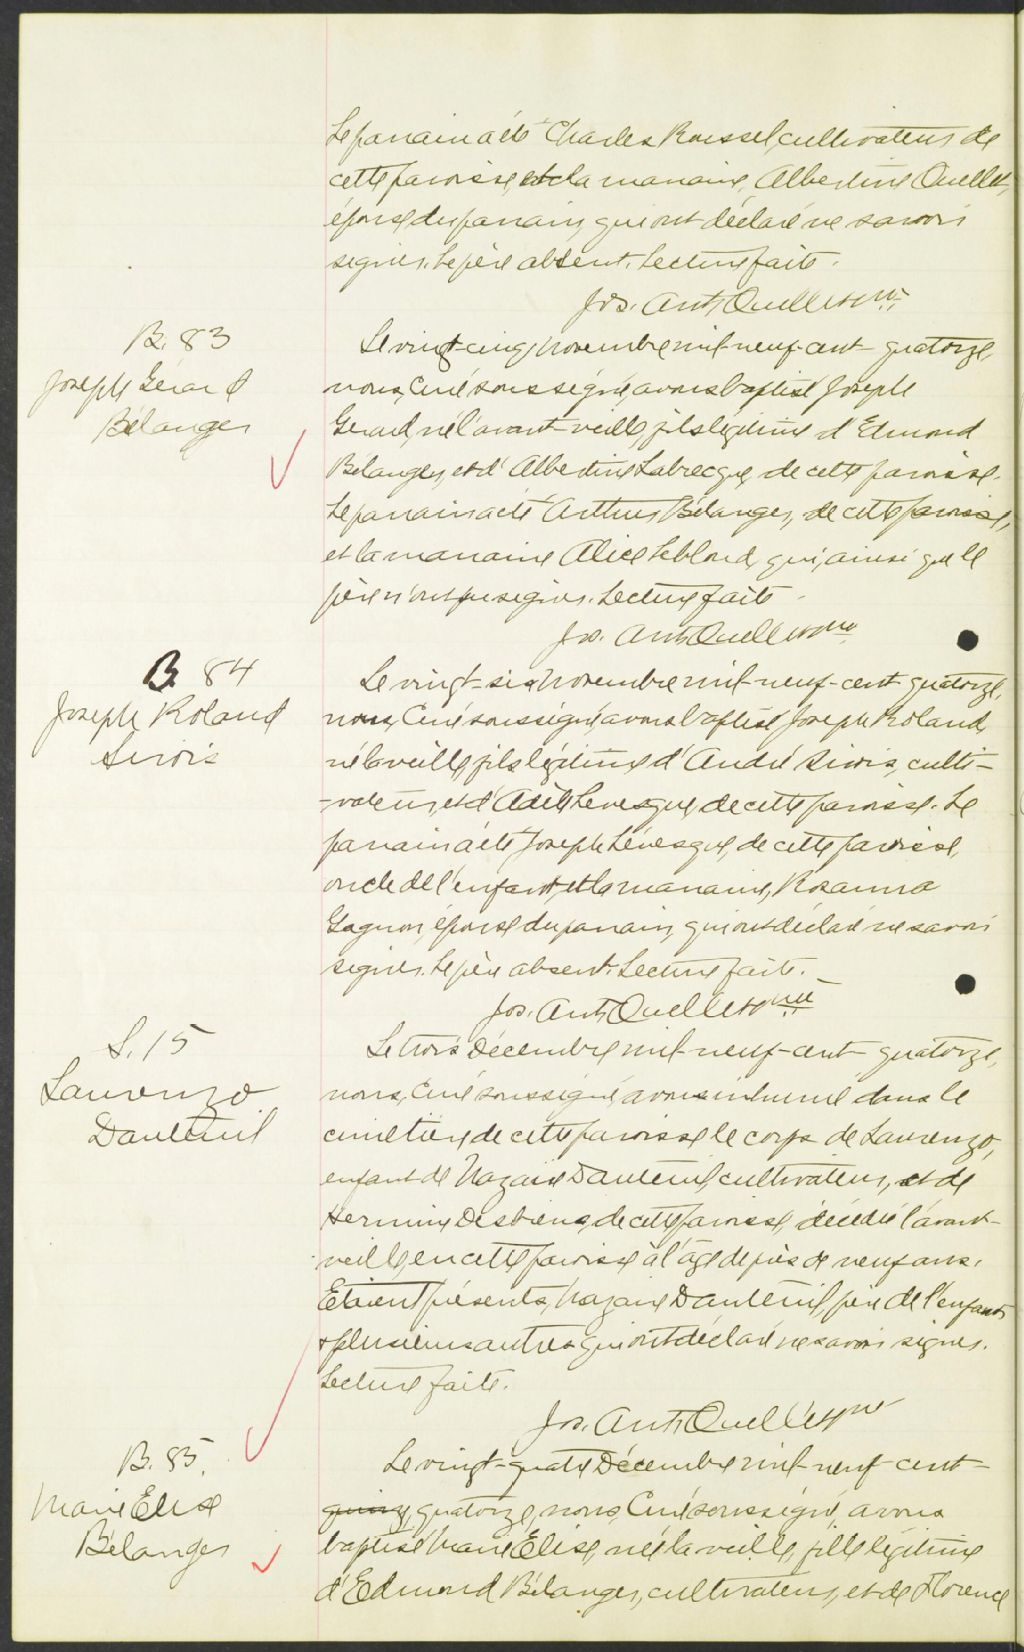 Le parrain a été Charles Roussel, cultivateur de
cette paroisse, et la marraine, Albertine Ouellet,
épouse du parrain, qui ont déclaré ne savoir
signer. Le père absent. Lecture faite.
Jos. Ant. Ouellet ptre
B. 83
Joseph Gérard
Bélanger
Le vingt-cinq, novembre mil-neuf-cent-quatorze,
nous, Curé soussigné, avons baptisé Joseph
Gerard, né l'avant-veille, fils légitime d'Edmond
Bélanger, et d'Albertine Labrecque, de cette paroisse.
Le parrain a été Arthur Bélanger, de cette paroisse,
et la marraine Alice Leblond, qui, ainsi que le
père n'ont pu signer. Lecture faite.
Jos. Ant. Ouellet ptre
B. 84
Joseph Roland
Sirois
Le vingt-six novembre mil-neuf-cent-quatorze,
nous, Curé soussigné, avons baptisé Joseph Roland,
né la veille, fils légitime d'André Sirois, culti-
-vateur, et d'Adèle Levesque, de cette paroisse. Le
parrain a été Joseph Lévesque, de cette paroisse,
oncle de l'enfant, et la marraine, Rosanna
Gagnon, épouse du parrain, qui ont déclaré ne savoir
signer. Le père absent. Lecture faite.
Jos. Ant. Ouellet ptre
S. 15
Laurenzo
Dauteuil
Le trois Décembre mil-neuf-cent-quatorze,
nous, Curé soussigné, avons inhumé dans le
cimetière de cette paroisse le corps de Laurenzo,
enfant de Nazaire Dauteuil, cultivateur, et de
Hermine Desbiens, de cette paroisse, décédé l'avant-
veille, en cette paroisse à l'âge de près de neuf ans.
Etaient présents, Nazaire Dauteuil, père de l'enfant
& plusieurs autres qui ont déclaré ne savoir signer.
Lecture faite.
Jos. Ant. Ouellet ptre
B. 85.
Marie Elise
Bélanger
Le vingt-quatre Décembre mil-neuf-cent-
quinze, quatorze, nous, Curé soussigné, avons
baptisé Marie Élise, née la veille, fille légitime
d'Edmond Bélanger, cultivateur, et de Florence